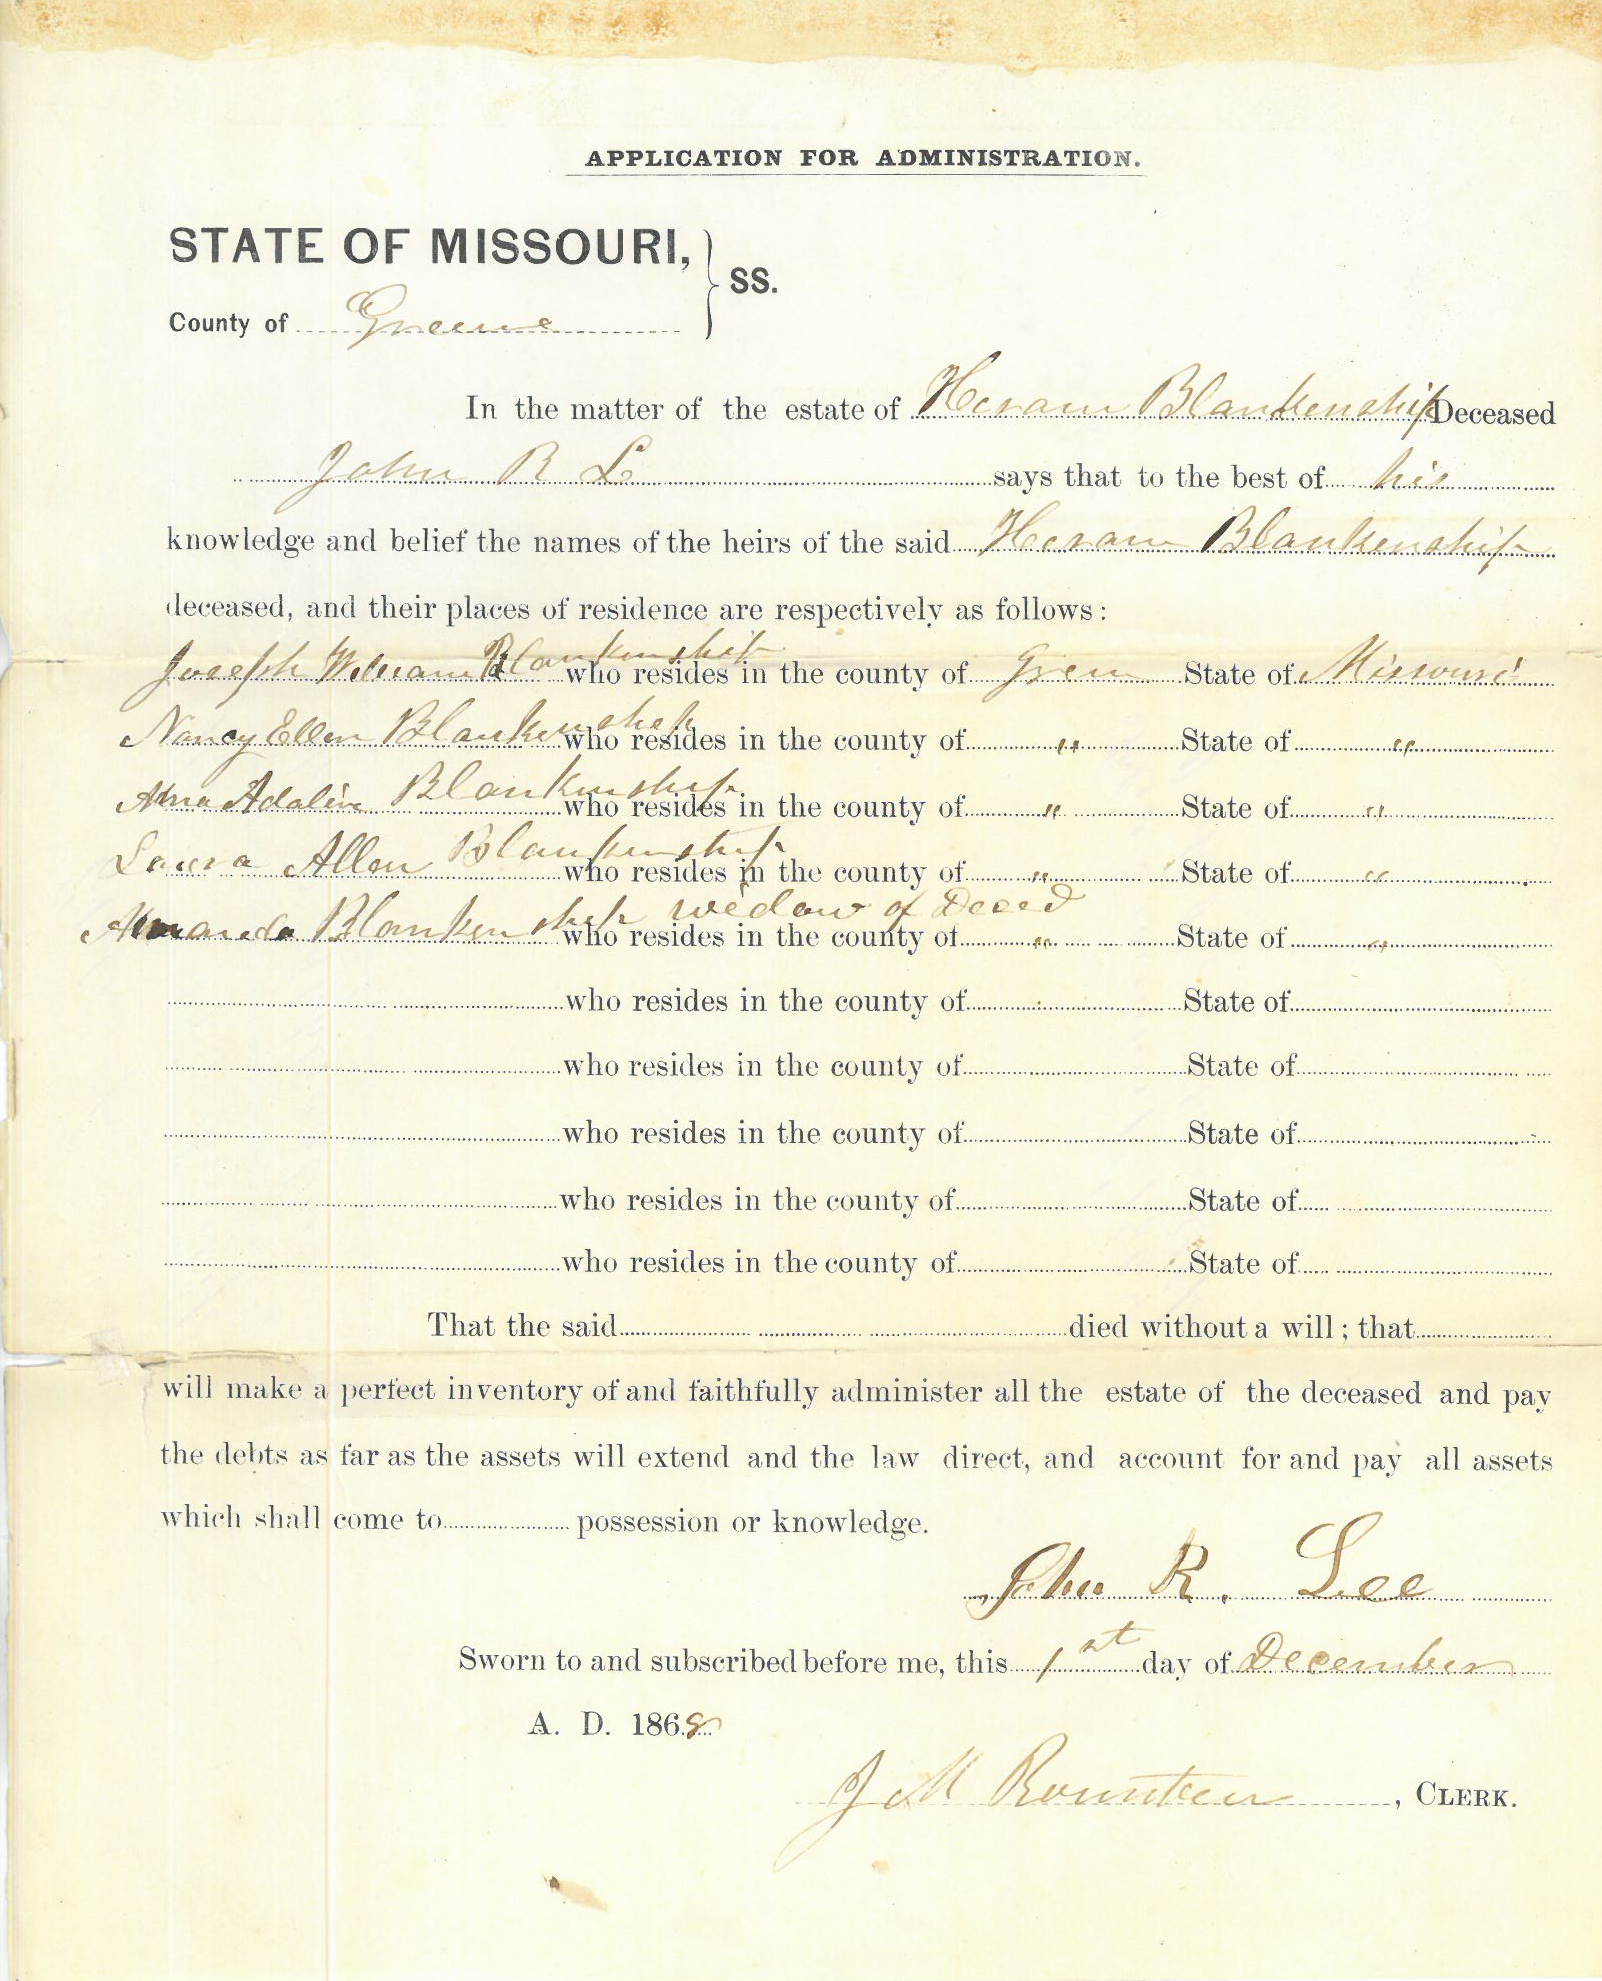 APPLICATION FOR ADMINISTRATION.
STATE OF MISSOURI, } SS.
County of Greene
In the matter of the estate of Hiram Blankenship Deceased
John R L says that to the best of his
knowledge and belief the names of the heirs of the said Hiram Blankenship
deceased, and their places of residence are respectively as follows:
Joseph William Blankenship who resides in the county of Green State of Missouri
Nancy Ellen Blankenship who resides in the county of " State of "
Adaline Blankenship who resides in the county of " State of "
Laura Allen Blankenship who resides in the county of " State of "
Amanda Blankenship widow of Decd who resides in the county of " State of "
who resides in the county of State of
who resides in the county of State of
who resides in the county of State of
who resides in the county of State of
who resides in the county of State of
That the said died without a will; that
will make a perfect inventory of and faithfully administer all the estate of the deceased and pay
the debts as far as the assets will extend and the law direct, and account for and pay all assets
which shall come to possession or knowledge.
John R. Lee
Sworn to and subscribed before me, this 1st day of December
A. D. 1868
J M Rountree, CLERK.